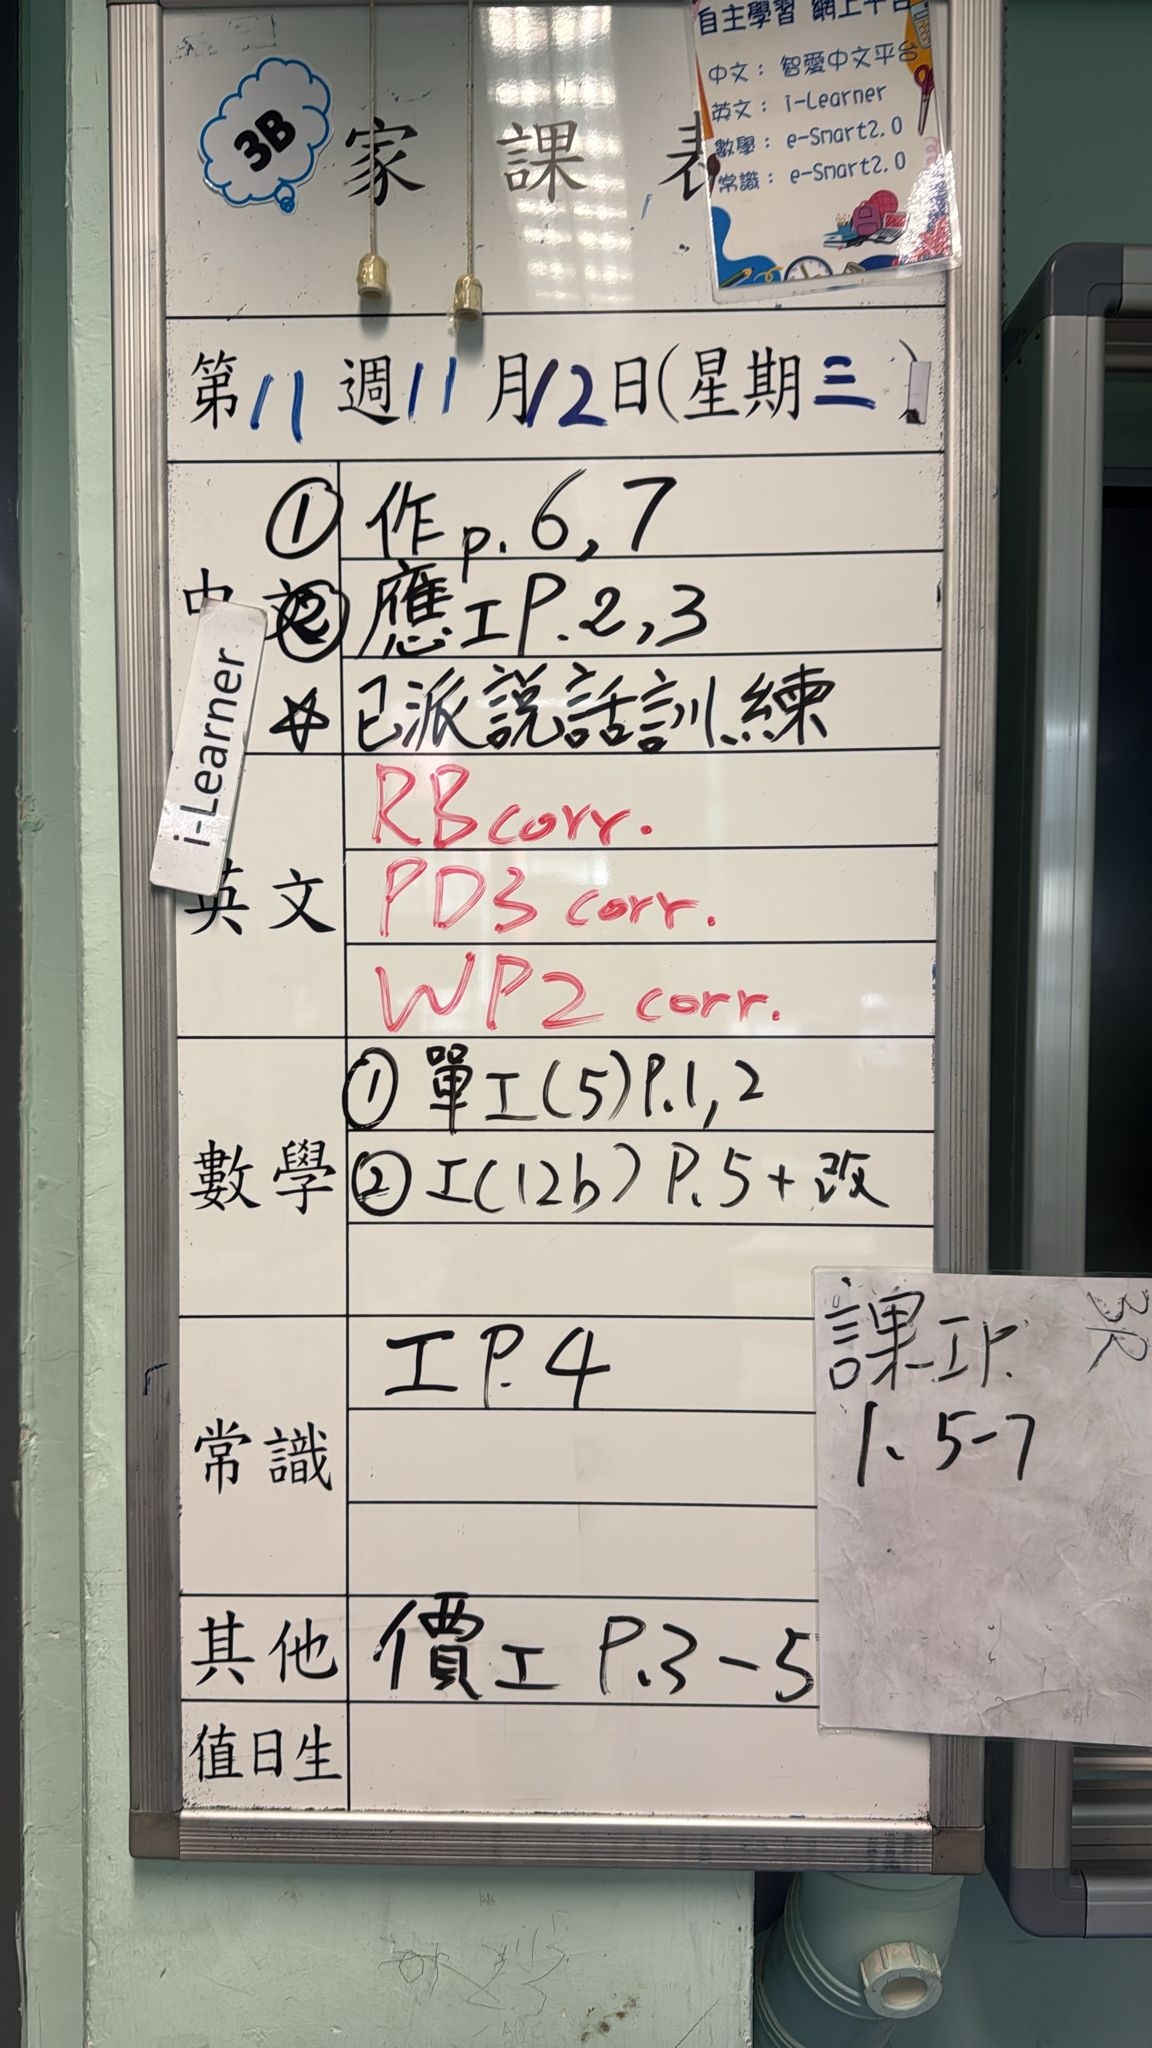 自主學習 網上平台
中文：智愛中文平台
英文：i-Learner
數學：e-Smart2.0
常識：e-Smart2.0
3B
家課表
第11週11月12日(星期三)
中文
① 作p.6,7
② 應工P.2,3
☆ 已派說話訓練
i-Learner
英文
RB corr.
PD3 corr.
WP2 corr.
數學
① 單工(5)P.1,2
② 工(12b) P.5+改
常識
工P.4
其他
價工 P.3-5
值日生
課工P.
1、5-7